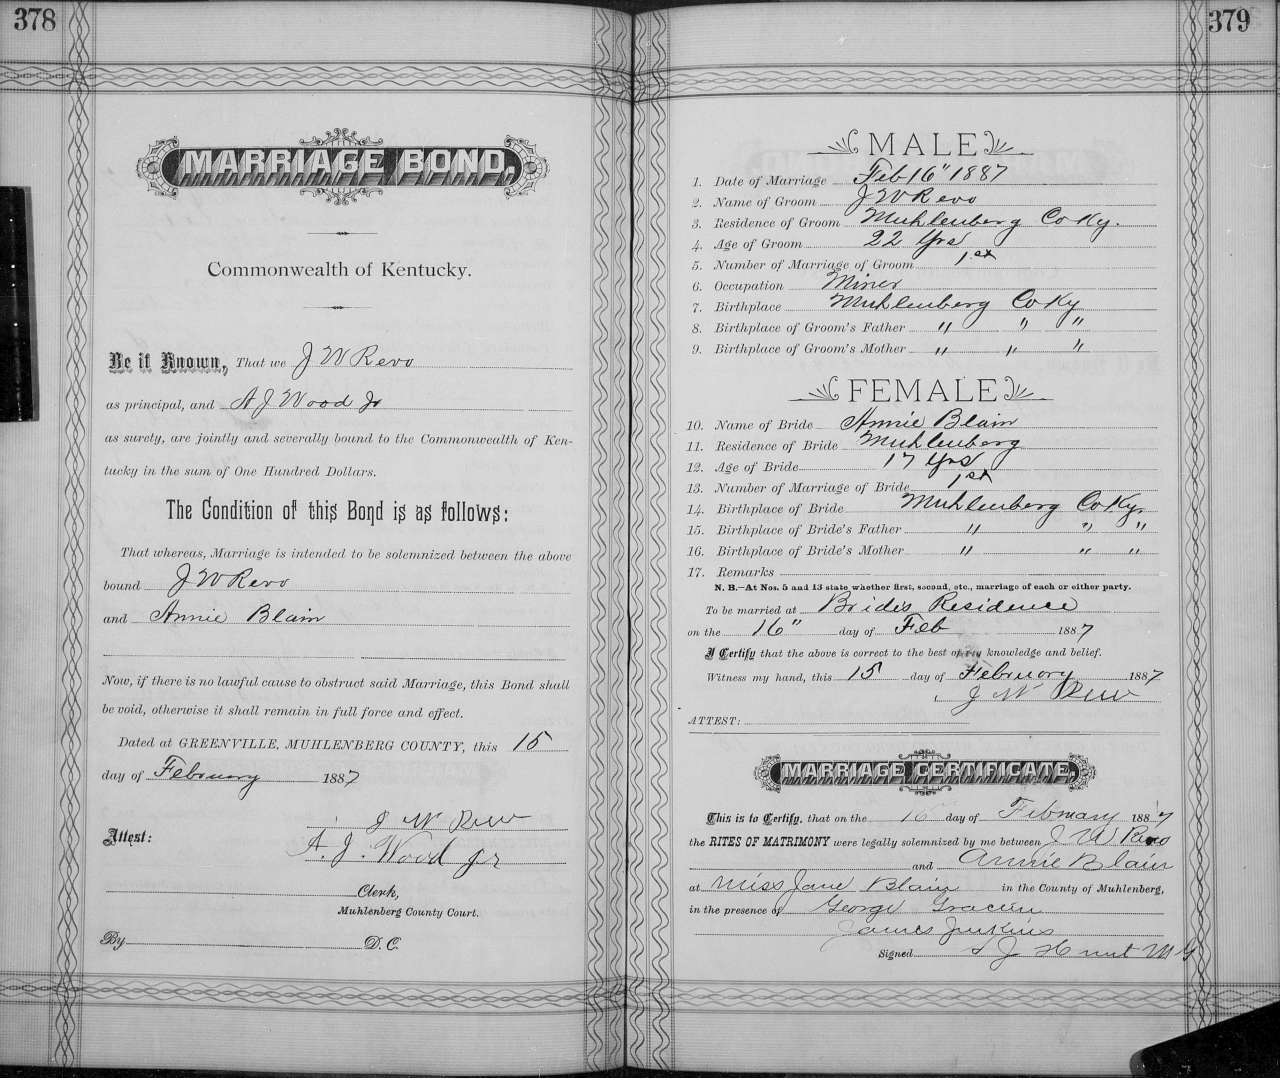 378
MARRIAGE BOND.
Commonwealth of Kentucky.
Be it Known, That we J W Revo
as principal, and A J Wood Jr
as surety, are jointly and severally bound to the Commonwealth of Ken-
tucky in the sum of One Hundred Dollars.
The Condition of this Bond is as follows:
That whereas, Marriage is intended to be solemnized between the above
bound J W Revo
and Annie Blain
Now, if there is no lawful cause to obstruct said Marriage, this Bond shall
be void, otherwise it shall remain in full force and effect.
Dated at GREENVILLE, MUHLENBERG COUNTY, this 15
day of February 1887
J W
Attest:
A. J. Wood Jr
Clerk,
Muhlenberg County Court.
By D. C.
379
MALE
1. Date of Marriage Feb 16" 1887
2. Name of Groom J W Revo
3. Residence of Groom Muhlenberg Co Ky.
4. Age of Groom 22 Yrs
5. Number of Marriage of Groom 1st
6. Occupation Miner
7. Birthplace Muhlenberg Co Ky
8. Birthplace of Groom's Father " " "
9. Birthplace of Groom's Mother " " "
FEMALE
10. Name of Bride Annie Blain
11. Residence of Bride Muhlenberg
12. Age of Bride 17 Yrs
13. Number of Marriage of Bride 1st
14. Birthplace of Bride Muhlenberg Co Ky
15. Birthplace of Bride's Father " " "
16. Birthplace of Bride's Mother " " "
17. Remarks
N. B.—At Nos. 5 and 13 state whether first, second, etc., marriage of each or either party.
To be married at Brides Residence
on the 16" day of Feb 1887
I Certify that the above is correct to the best of my knowledge and belief.
Witness my hand, this 15 day of February 1887
J W
ATTEST:
MARRIAGE CERTIFICATE.
This is to Certify, that on the 16 day of February 1887
the RITES OF MATRIMONY were legally solemnized by me between J W
and Annie Blain
at Miss Jane Blain in the County of Muhlenberg,
in the presence of George
James Jenkins
Signed J M G